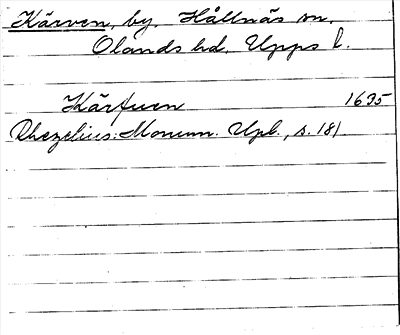 Kärven, by. Hållnäs sn,
Olands hd. Upps l.
Kärfuen 1695
Rhezelius: Monum. Upl., s. 181